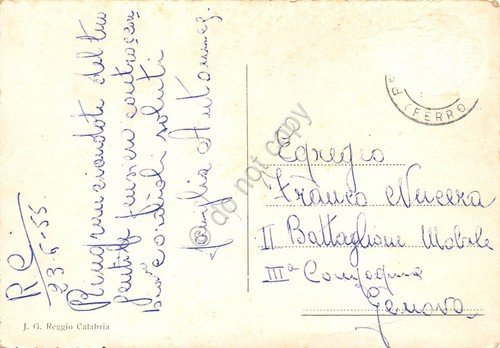 RC/
23.5.55.
Ringraziandoti del tuo
gentile pensiero contraccam
biamo cordiali saluti
Famiglia
Egregio
Franco Nucera
II Battaglione Mobile
IIIª Compagnia
Genova
(FERRO
J. G. Reggio Calabria
do not copy